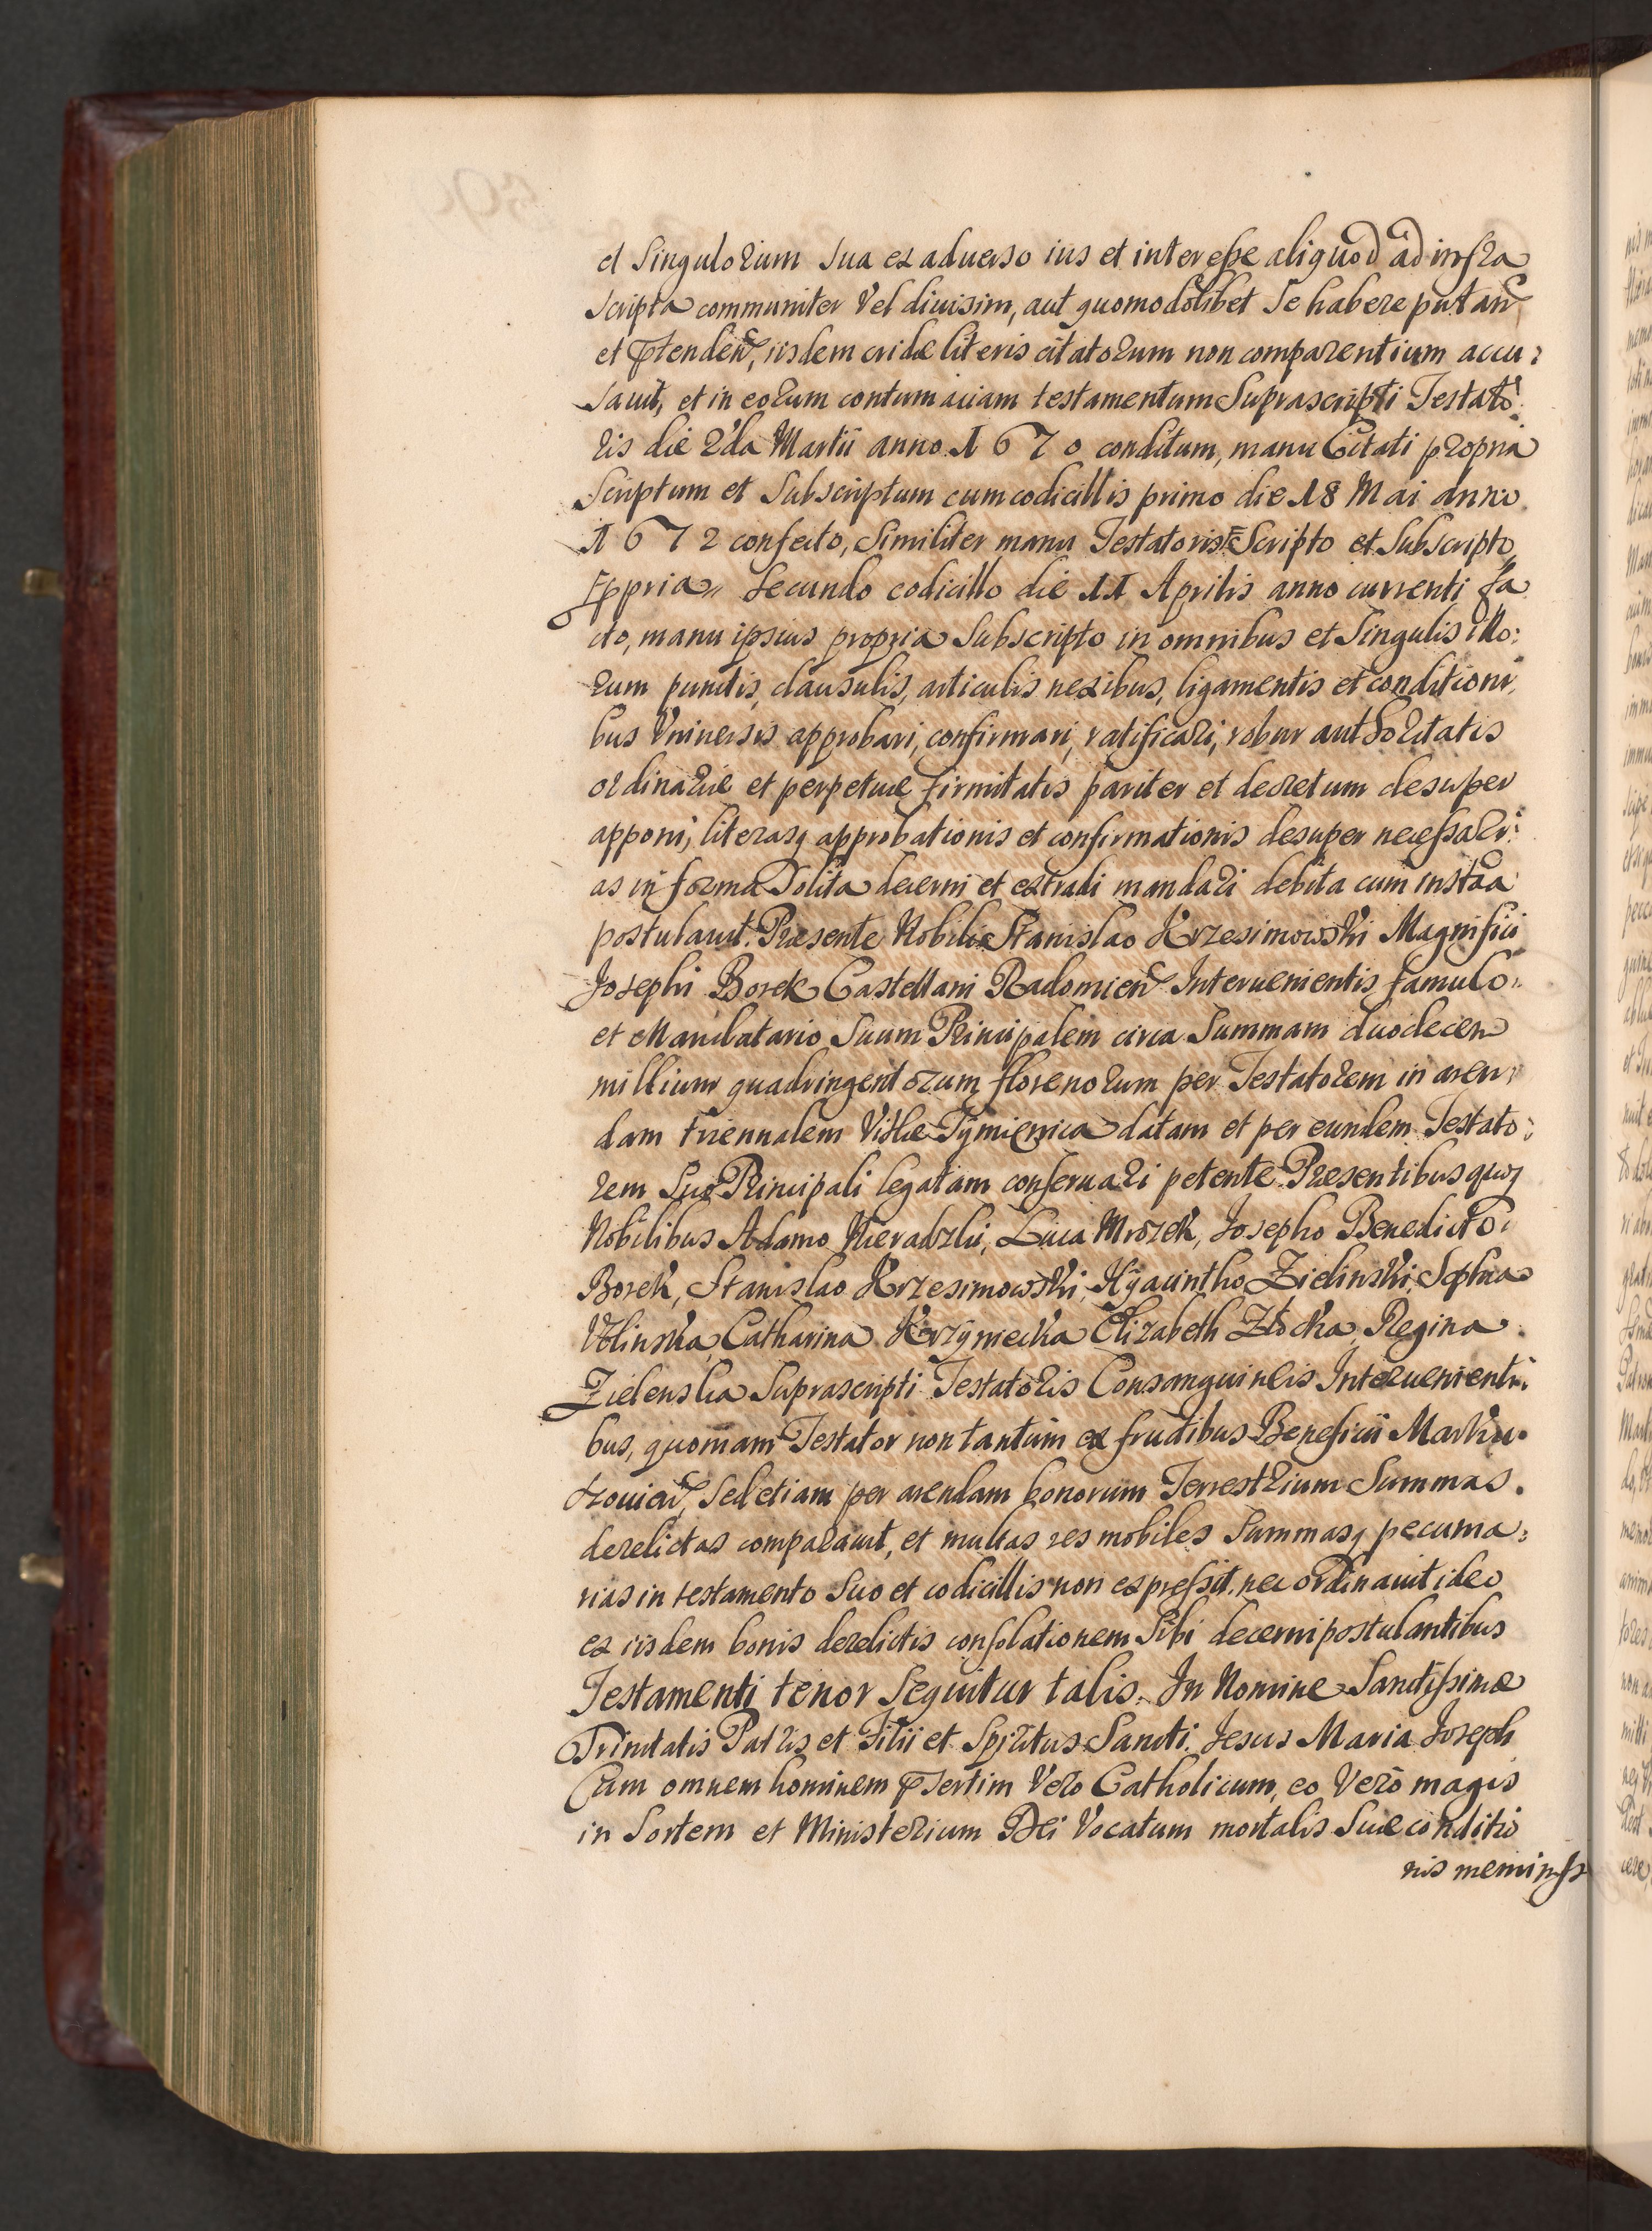 et Singulorum sua ex aduerso ius et interesse aliquod ad infra
scripta communiter Vel diuisim, aut quomodolibet Se habere putan̄
et p̄tenden̄, iisdem literis citatorum non comparentium accu:
sauit, et in eorum contumaciam testamentum Suprascripti Testato
ris die 2da Martii anno 1670 conditum, manu Citati propria
Scriptum et Subscriptum cum codicillis primo die 18 Mai anno
1672 confecto, Similiter manu Testatoris Scripto et Subscripto
ppria Secundo codicillo die 11 Aprilis anno currenti fa
cto, manu ipsius propria Subscripto in omnibus et Singulis illo:
rum punctis, clausulis, articulis nexibus, ligamentis et conditioni
bus Vniuersis approbari, confirmari, ratificari, robur authoritatis
ordinariæ et perpetuæ firmitatis pariter et decretum desuper
apponi, literasq approbationis et confirmationis desuper necessari:
as in forma Solita decerni et extradi mandari debita cum inst̄ia
postulauit. Præsente Nobili Stanislao Krzesimowski Magnifici
Josephi Borek Castellani Radomien̄ Interuenientis famulo
et Mandatario Suum Principalem circa Summam duodecem
millium quadringentorum florenorum per Testatorem in aren:
dam triennalem Villæ Tymienica datam et per eundem Testato:
rem Suo Principali legatam conseruari petente. Præsentibus quoq
Nobilibus Adamo Nieradzki, Luca Mrozek, Josepho Benedicto
Borek, Stanislao Krzesimowski, Hyacintho Zielinski, Sophia
Volinska, Catharina Krzyniecka Elizabeth Złocka, Regina
Zielenska Suprascripti Testatoris Consanguineis Interuenienti:
bus, quoniam Testator non tantum ex fructibus Beneficii Markus
zouien̄, Sed etiam per arendam bonorum Terrestrium Summas
derelictas comparauit, et multas res mobiles Summasq pecunia:
rias in testamento Suo et codicillis non expressit, nec ordinauit ideo
ex iisdem bonis derelictis consolationem Sibi decerni postulantibus
Testamenti tenor Sequitur talis. In Nomine Sanctissimæ
Trinitatis Patris et Filii et Spiritus Sancti. Jesus Maria Joseph
Cum omnem hominem p̄sertim Vero Catholicum, eo Vero magis
in Sortem et Ministerium Dei Vocatum mortalis Suæ conditio
nis meminisse